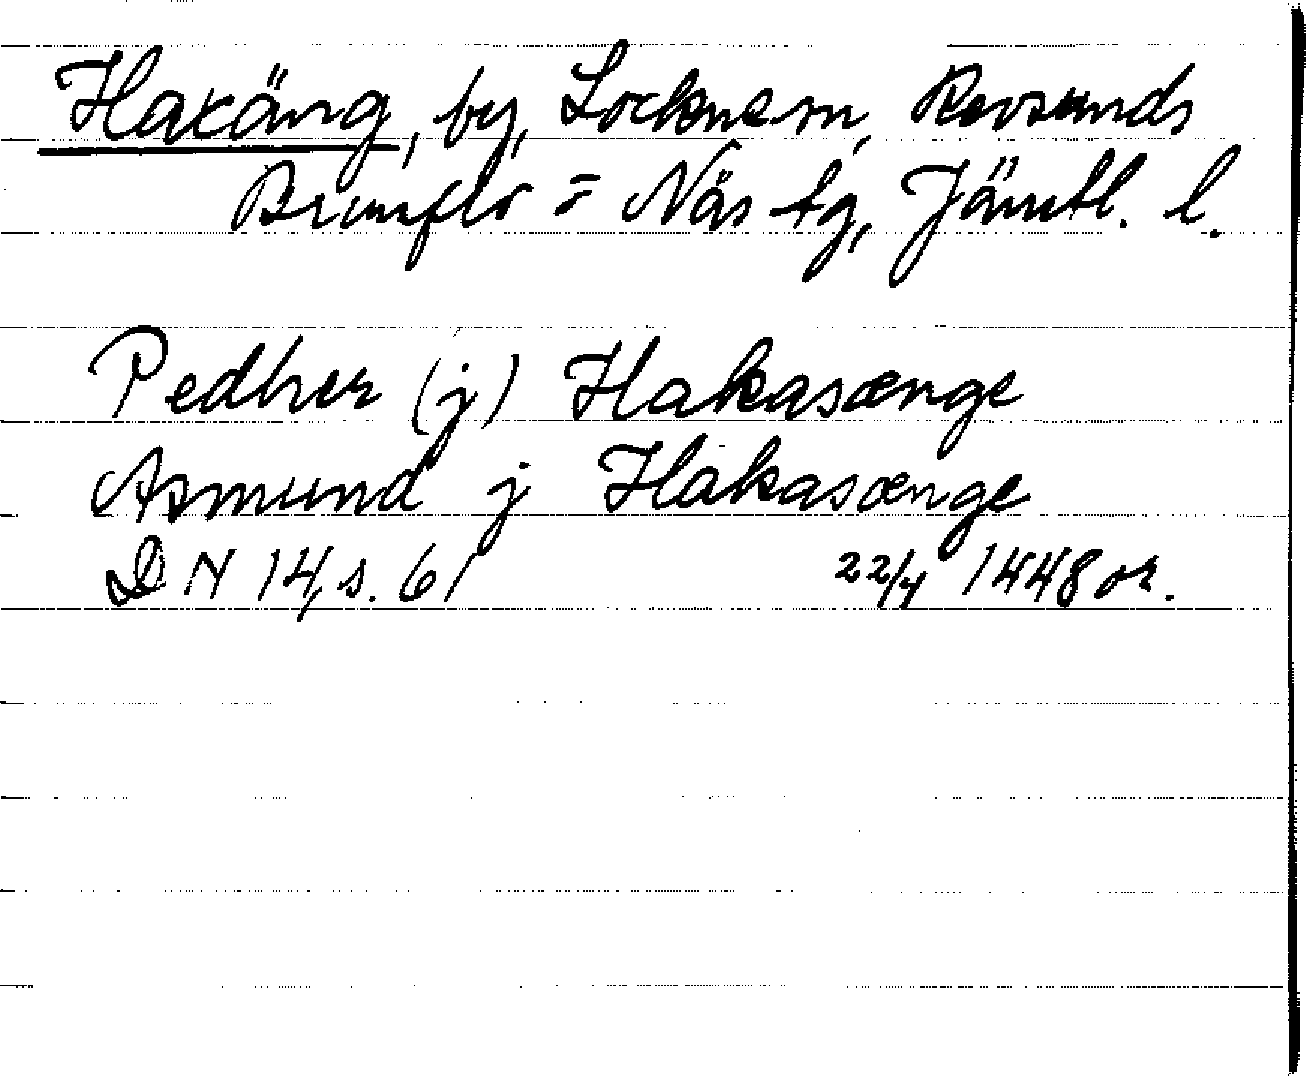 Haxäng, by, Lockne sn, Revsunds
Brunflo = Näs tg, Jämtl. l.
Pedher (j) Hakasænge
Asmund j Hakasænge
DN 14, s. 61 22/4 1448 or.